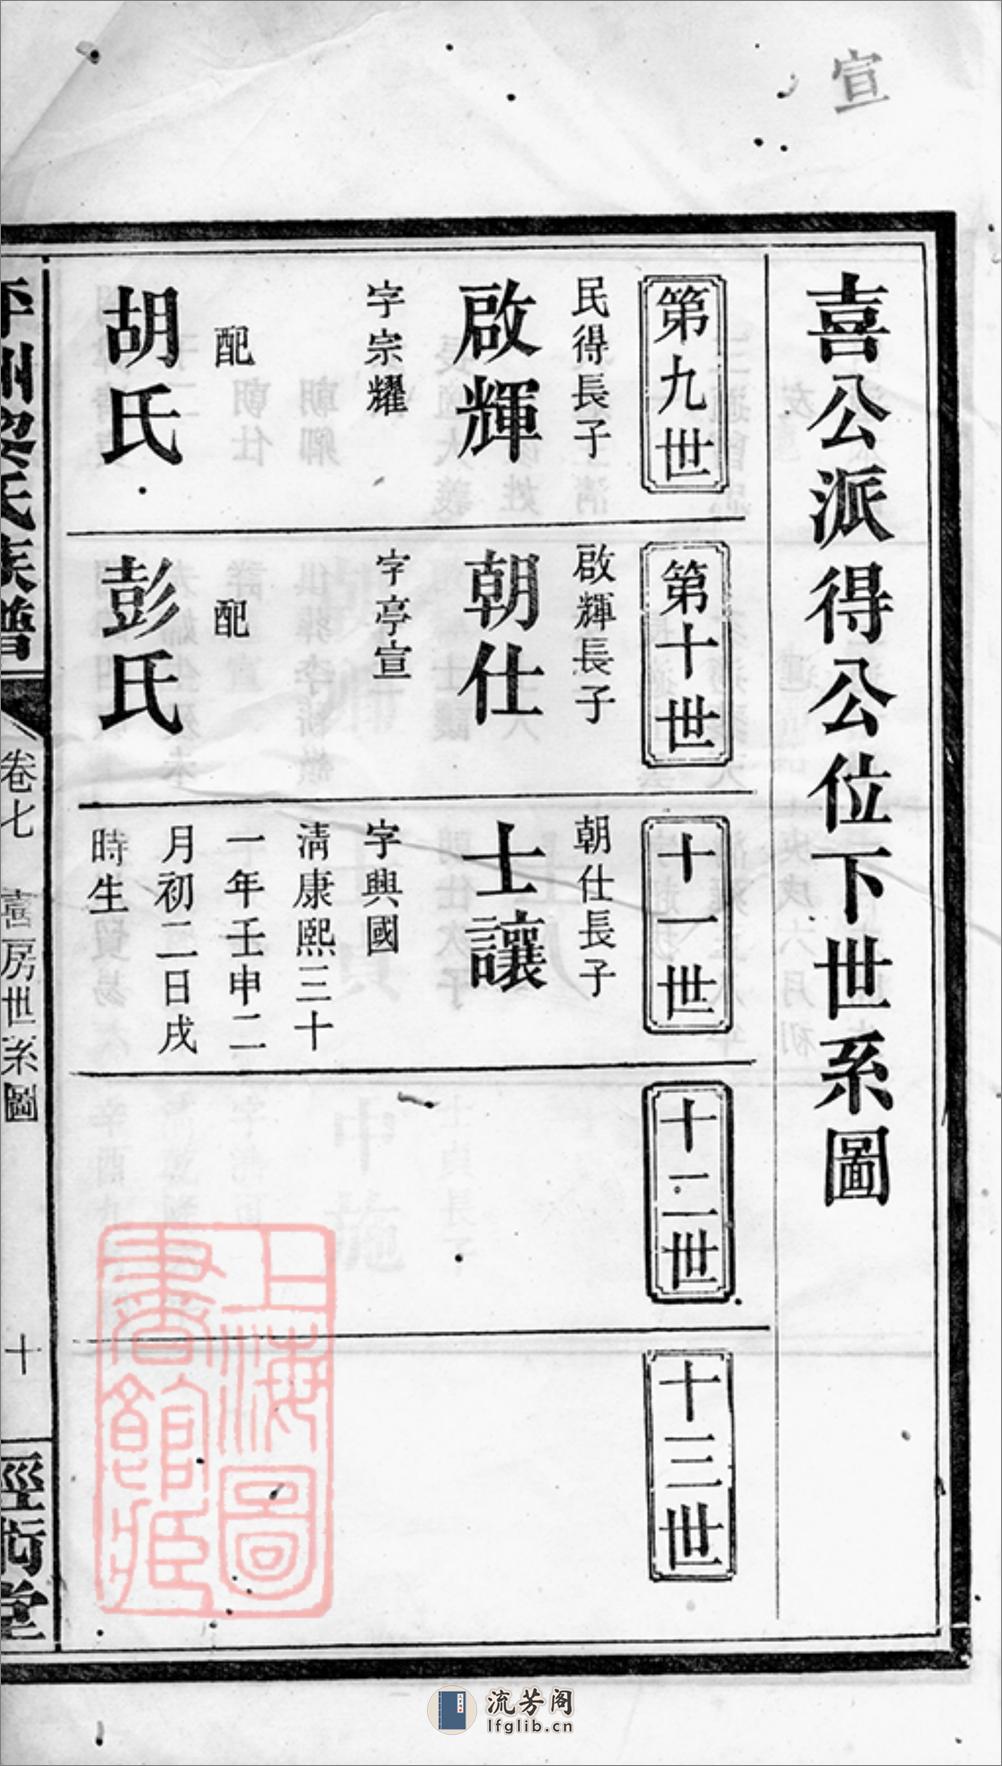 宣
喜公派得公位下世系圖
第九世
民得長子
啟輝
字宗耀
配
胡氏
第十世
啟輝長子
朝仕
字亭宣
配
彭氏
十一世
朝仕長子
士讓
字興國
清康熙三十
一年壬申二
月初二日戌
時生
十二世
十三世
氏族譜
卷七
喜房世系圖
十
經術堂
上海圖
書館藏
流芳阁
lfglib.cn